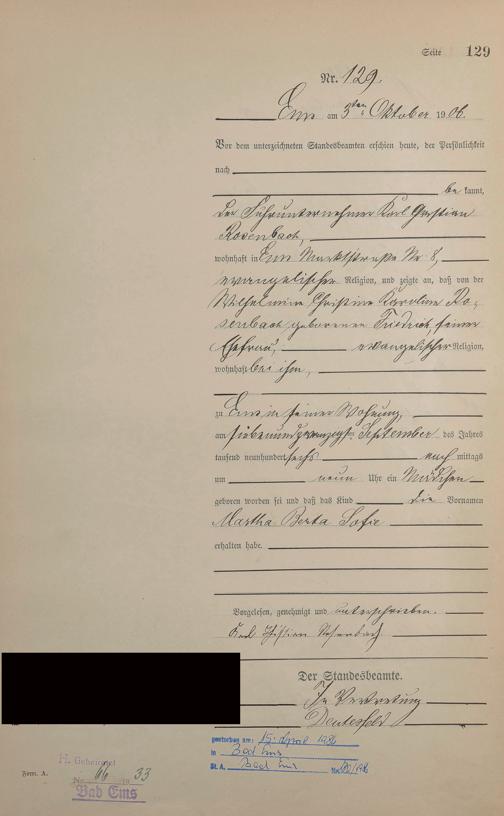 Seite 129
Nr. 129.
Ems am 3ten Oktober 1906.
Vor dem unterzeichneten Standesbeamten erschien heute, der Persönlichkeit
nach
be kannt,
der Fuhrunternehmer Karl Christian
Rosenbach,
wohnhaft in Ems Marktstraße Nr 8,
evangelischer Religion, und zeigte an, daß von der
Wilhelmine Christine Karoline Ro-
senbach geborenen Friedrich, seiner
Ehefrau, evangelischer Religion,
wohnhaft bei ihm,
zu Ems in seiner Wohnung,
am siebenundzwanzigsten September des Jahres
tausend neunhundert sechs nach mittags
um neun Uhr ein Mädchen
geboren worden sei und daß das Kind die Vornamen
Martha Berta Sofie
erhalten habe.
Vorgelesen, genehmigt und unterschrieben.
Karl Christian Rosenbach
Der Standesbeamte.
In Vertretung
gestorben am: 15. April 1986
in Bad Ems
St. A. Bad Ems No
H. Geheiratet
Form. A. No 66 1933
Bad Ems